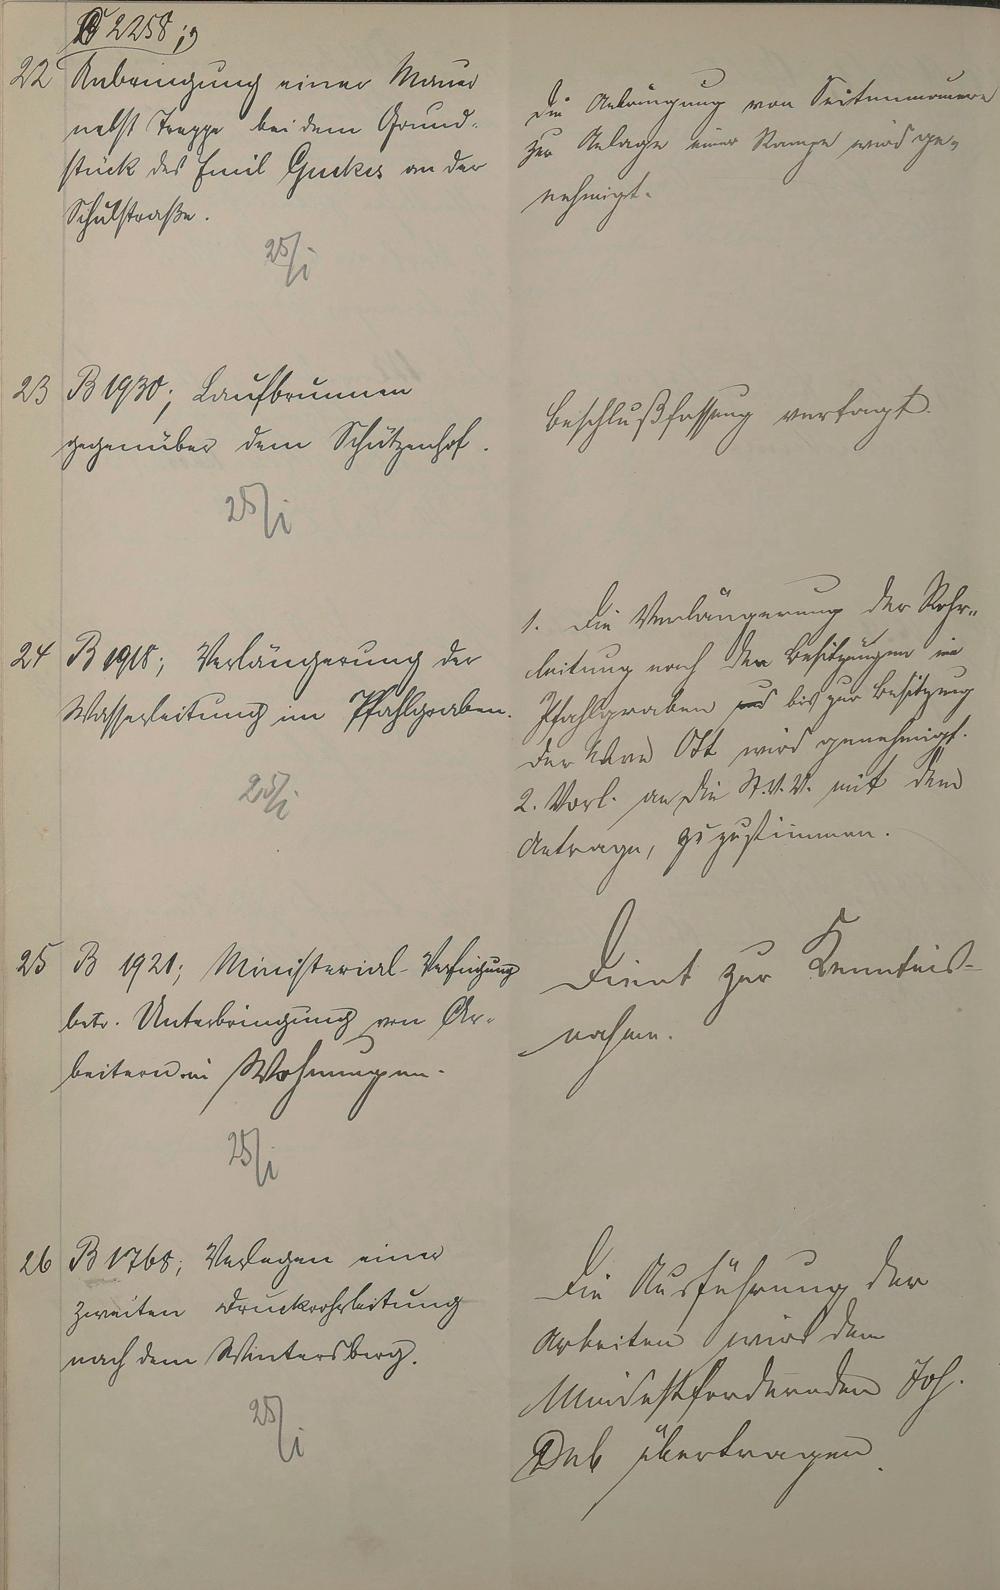 B 2258;
22 Anbringung einer Mauer
nebst Treppe bei dem Grund-
stück des Emil Guckes an der
Schulstraße.
25/i
Die Anbringung von Seitenmauern
zur Anlage einer Rampe wird ge-
nehmigt.
23 B 1930; Laufbrunnen
gegenüber dem Schützenhof.
25/i
Beschlußfassung vertagt.
24 B 1918; Verlängerung der
Wasserleitung im Pfahlgraben.
25/i
1. Die Verlängerung der Rohr-
leitung nach den Besitzungen im
Pfahlgraben bis zur Besitzung
der Ott wird genehmigt.
2. Vorl. an die St.V.V. mit dem
Antrage, zuzustimmen.
25 B 1921; Ministerial-Verfügung
betr. Unterbringung von Ar-
beitern in Wohnungen.
25/i
Dient zur Kenntnis-
nahme.
26 B 1768; Verlegen einer
zweiten Druckrohrleitung
nach dem Wintersberg.
25/i
Die Ausführung der
Arbeiten wird dem
Mindestfordernden Joh.
übertragen.